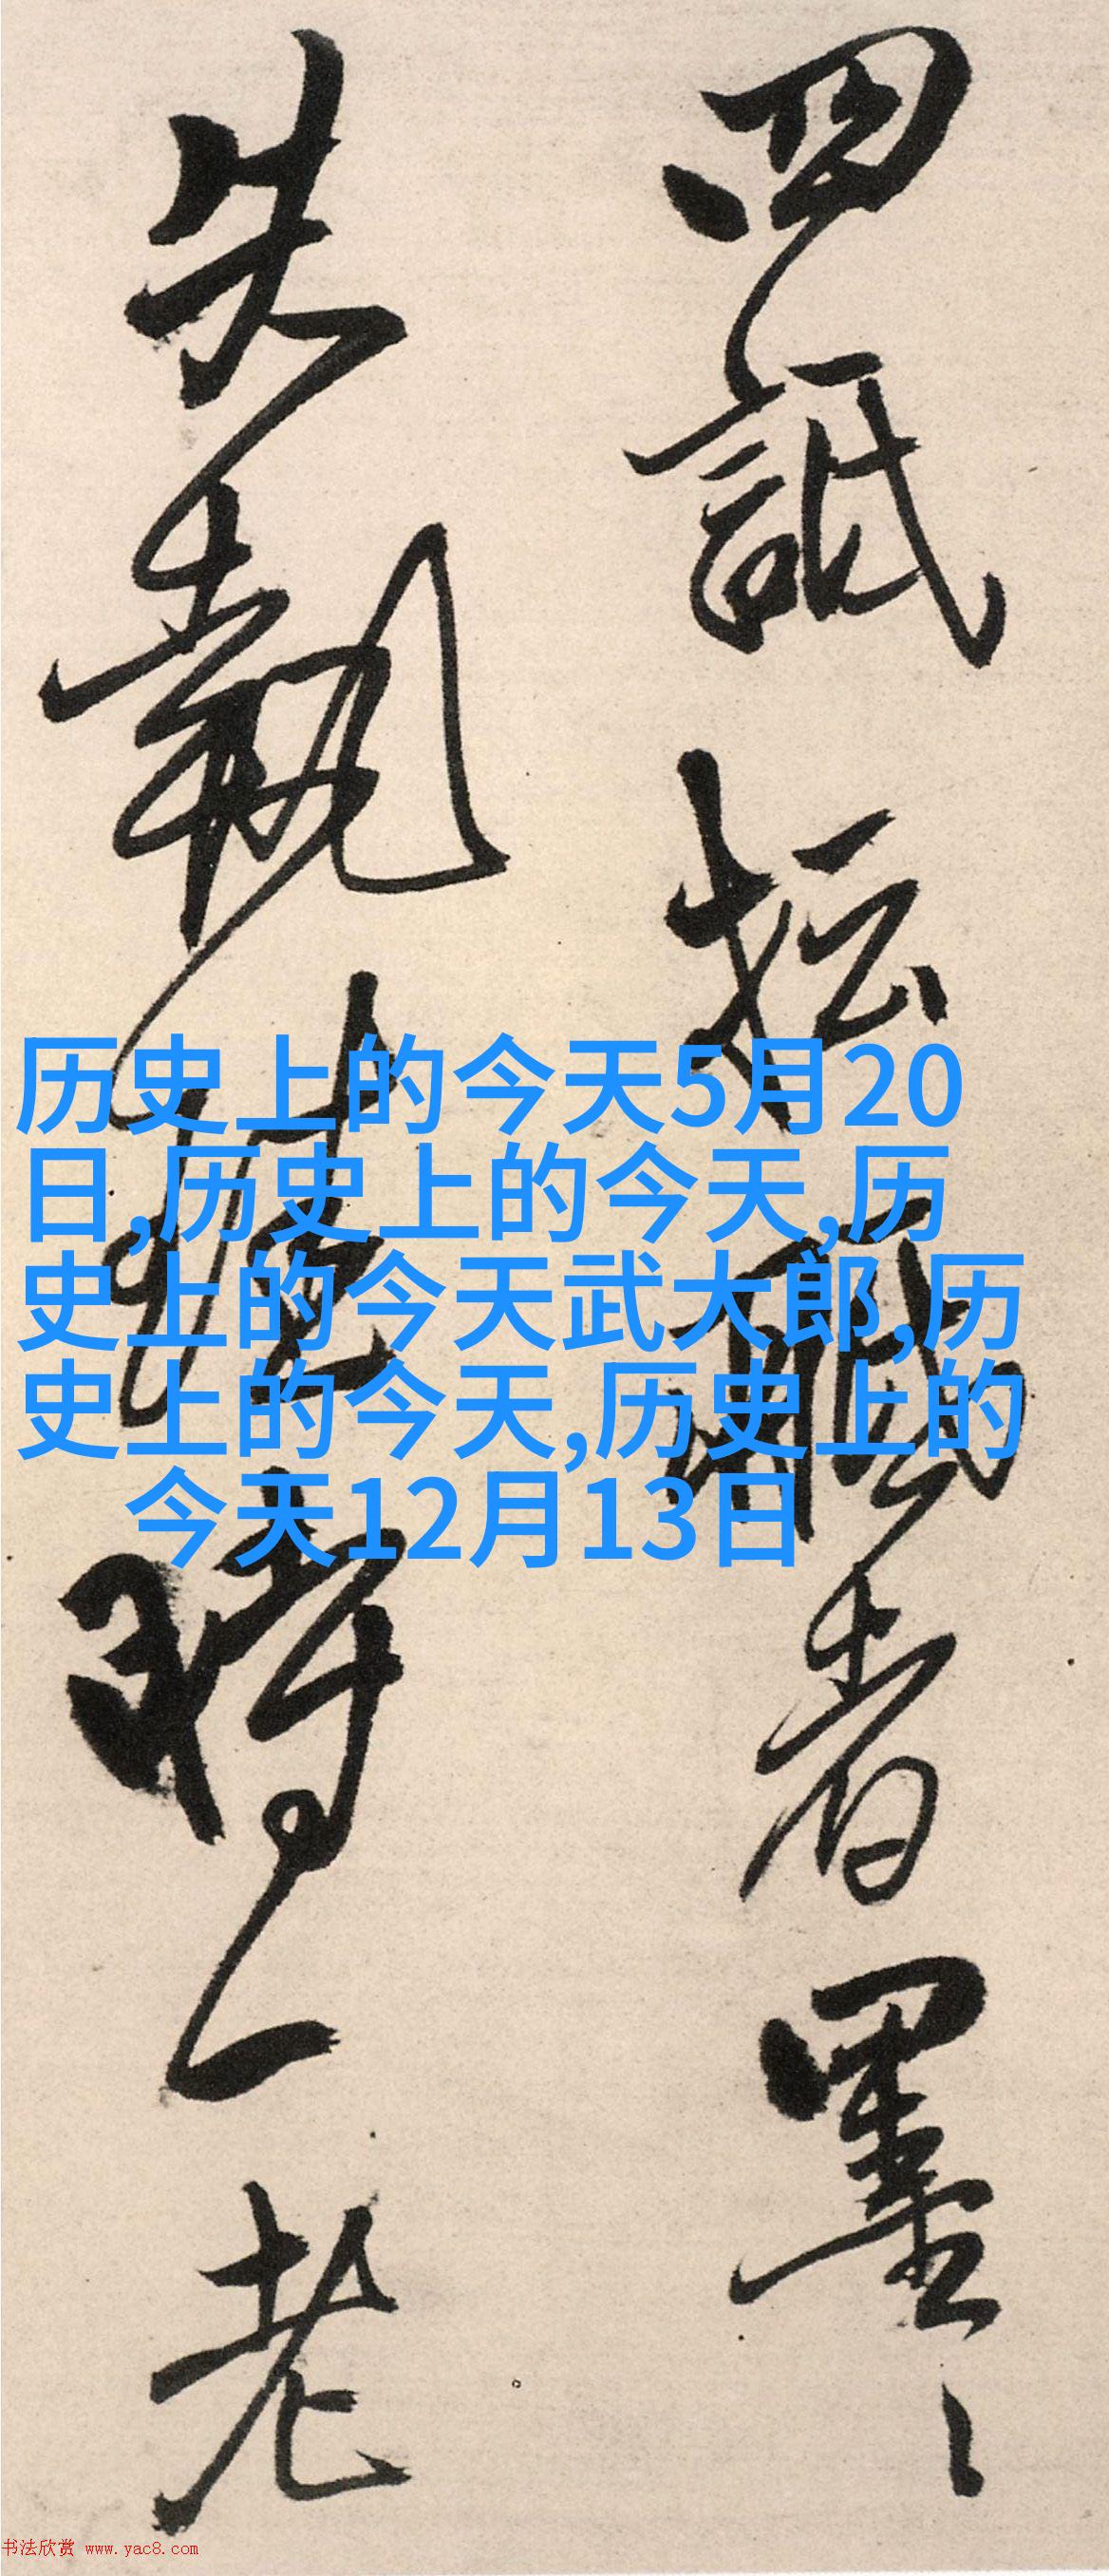 四詆坛職者墨〻
失執 時一老
历史上的今天5月20
日,历史上的今天,历
史上的今天武大郎,历
史上的今天,历史上的
今天12月13日
书法欣赏 www.yac8.com